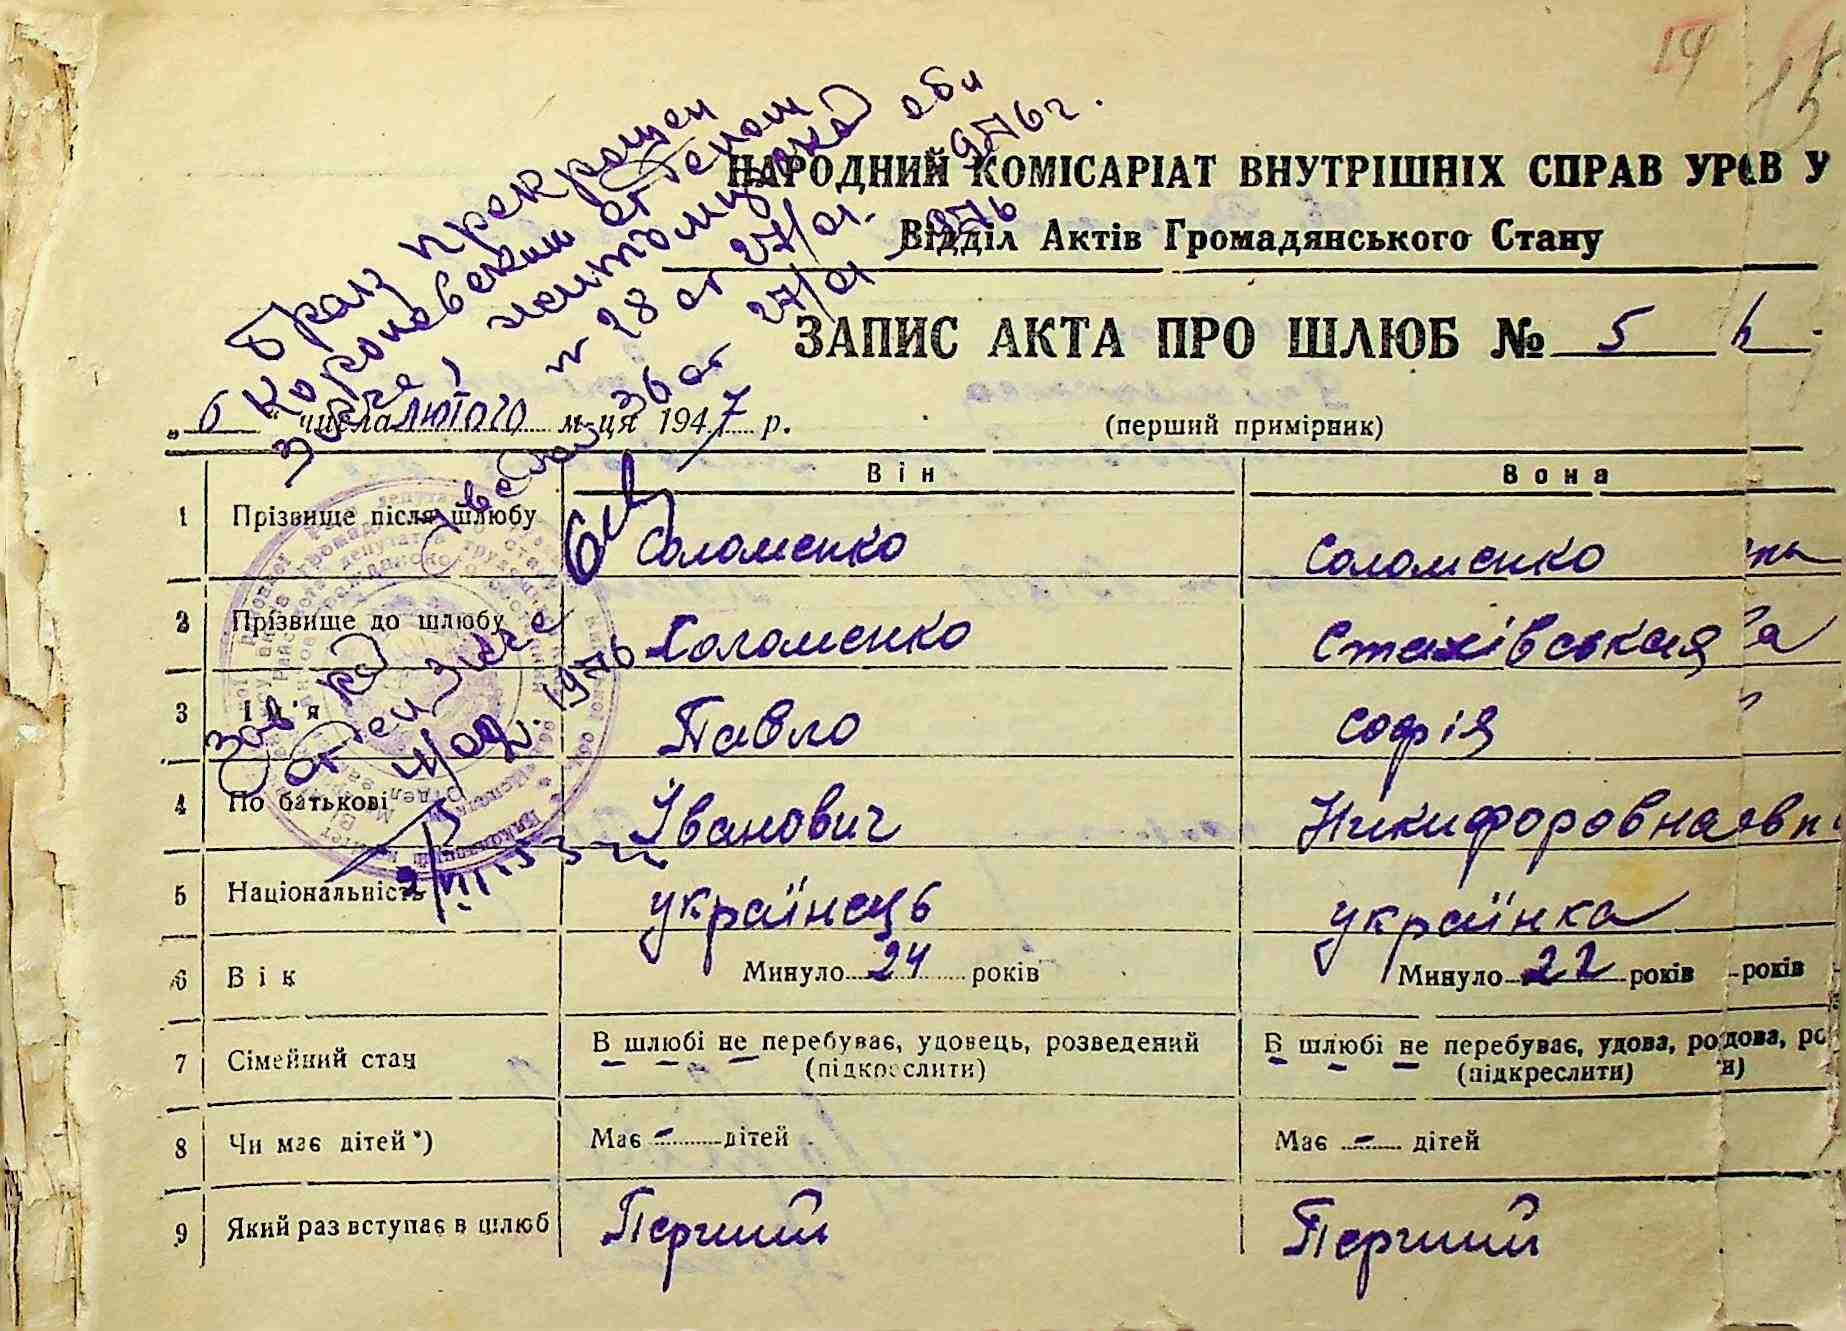 14
НАРОДНИЙ КОМІСАРІАТ ВНУТРІШНІХ СПРАВ УРСР У
Відділ Актів Громадянського Стану
ЗАПИС АКТА ПРО ШЛЮБ № 5
„6" числа лютого м-ця 1947 р.
(перший примірник)
Брак прекращен
Коростовским отделом
загса, житомирской обл
№ 28 от 27/01. 1976г.
27/01 1976
Він Вона
1 Прізвище після шлюбу Соломенко Соломенко
2 Прізвище до шлюбу Соломенко Стахівська
3 Ім'я Павло Софія
4 По батькові Іванович Никифоровна
5 Національність українець українка
6 Вік Минуло 24 років Минуло 22 років років
7 Сімейний стан В шлюбі не перебуває, удовець, розведений В шлюбі не перебуває, удова, ро дова, ро
(підкреслити) (підкреслити) и)
8 Чи має дітей*) Має - дітей Має - дітей
9 Який раз вступає в шлюб Перший Перший
Зав
отд загс
1976